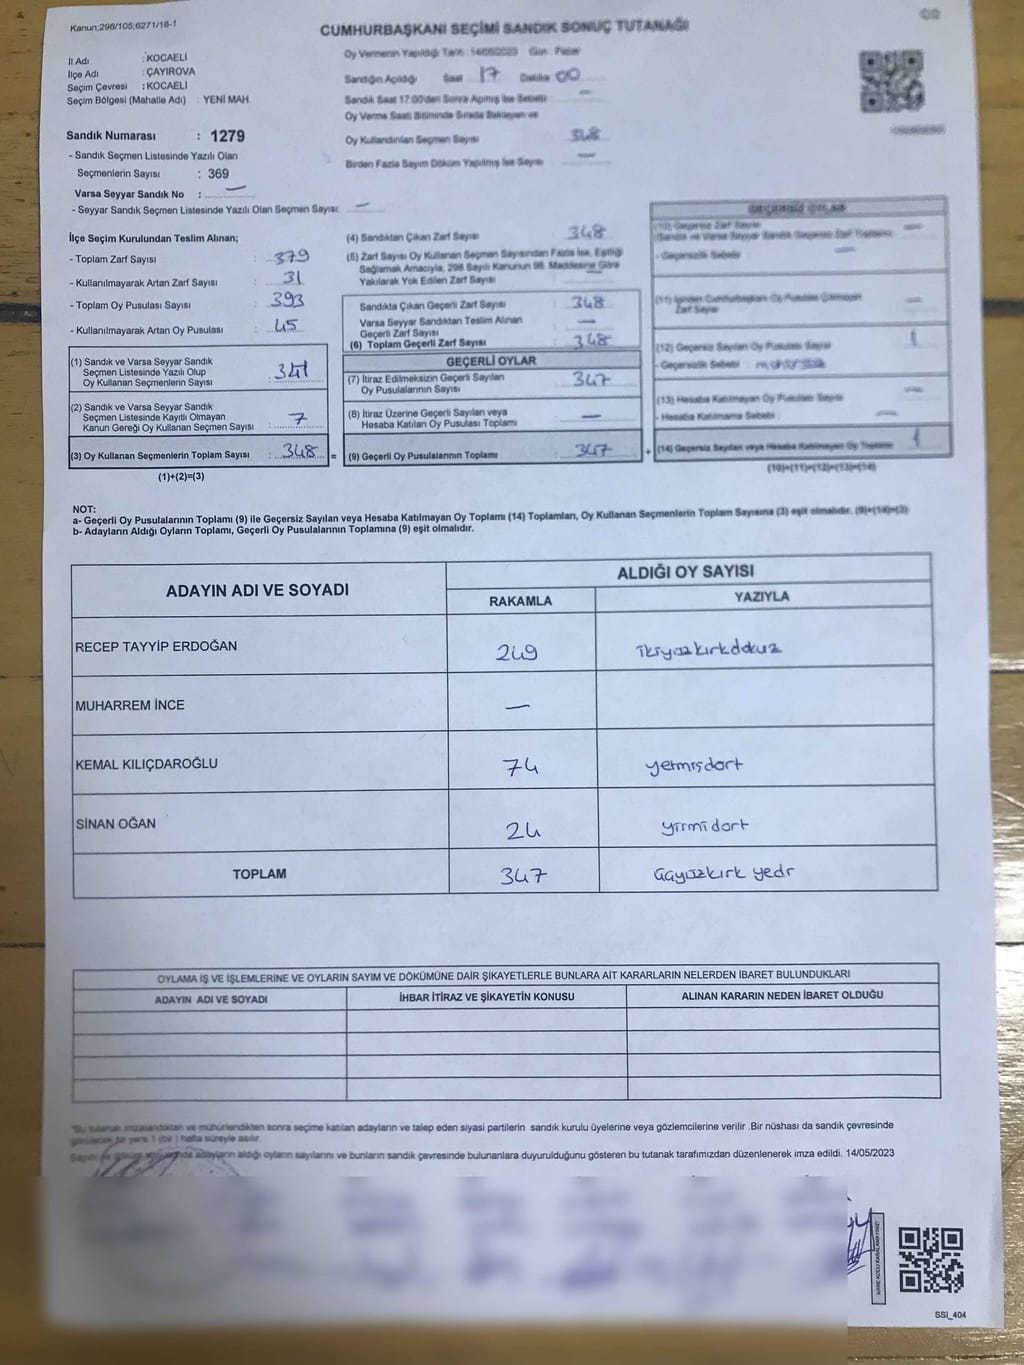 Kanun;298/105,6271/18-1
CUMHURBAŞKANI SEÇİMİ SANDIK SONUÇ TUTANAĞI
İl Adı : KOCAELİ
İlçe Adı : ÇAYIROVA
Seçim Çevresi : KOCAELİ
Seçim Bölgesi (Mahalle Adı) : YENİ MAH.
Sandık Numarası : 1279
- Sandık Seçmen Listesinde Yazılı Olan
Seçmenlerin Sayısı : 369
Varsa Seyyar Sandık No : —
- Seyyar Sandık Seçmen Listesinde Yazılı Olan Seçmen Sayısı: —
Oy Vermenin Yapıldığı Tarih 14/05/2023 Gün Pazar
Sandığın Açıldığı Saat 17 Dakika 00
Sandık Saat 17:00'den Sonra Açılmış İse Sebebi —
Oy Verme Saati Bitiminde Sırada Bekleyen ve
Oy Kullandırılan Seçmen Sayısı 348
Birden Fazla Sayım Döküm Yapılmış İse Sayısı —
İlçe Seçim Kurulundan Teslim Alınan;
- Toplam Zarf Sayısı : 379
- Kullanılmayarak Artan Zarf Sayısı : 31
- Toplam Oy Pusulası Sayısı : 393
- Kullanılmayarak Artan Oy Pusulası : 45
(1) Sandık ve Varsa Seyyar Sandık
Seçmen Listesinde Yazılı Olup
Oy Kullanan Seçmenlerin Sayısı : 341
(2) Sandık ve Varsa Seyyar Sandık
Seçmen Listesinde Kayıtlı Olmayan
Kanun Gereği Oy Kullanan Seçmen Sayısı : 7
(3) Oy Kullanan Seçmenlerin Toplam Sayısı : 348 =
(1)+(2)=(3)
(4) Sandıktan Çıkan Zarf Sayısı 348
(5) Zarf Sayısı Oy Kullanan Seçmen Sayısından Fazla İse, Eşitliği
Sağlamak Amacıyla, 298 Sayılı Kanunun 98. Maddesine Göre
Yakılarak Yok Edilen Zarf Sayısı
Sandıkta Çıkan Geçerli Zarf Sayısı : 348
Varsa Seyyar Sandıktan Teslim Alınan
Geçerli Zarf Sayısı : —
(6) Toplam Geçerli Zarf Sayısı : 348
GEÇERLİ OYLAR
(7) İtiraz Edilmeksizin Geçerli Sayılan
Oy Pusulalarının Sayısı : 347
(8) İtiraz Üzerine Geçerli Sayılan veya
Hesaba Katılan Oy Pusulası Toplamı : —
(9) Geçerli Oy Pusulalarının Toplamı : 347 +
GEÇERSİZ OYLAR
(10) Geçersiz Zarf Sayısı —
- Geçersizlik Sebebi : —
(11) İçinden Cumhurbaşkanı Oy Pusulası Çıkmayan
Zarf Sayısı —
(12) Geçersiz Sayılan Oy Pusulası Sayısı 1
- Geçersizlik Sebebi :
(13) Hesaba Katılmayan Oy Pusulası Sayısı —
- Hesaba Katılmama Sebebi : —
(14) Geçersiz Sayılan veya Hesaba Katılmayan Oy Toplamı 1
(10)+(11)+(12)+(13)=(14)
NOT:
a- Geçerli Oy Pusulalarının Toplamı (9) ile Geçersiz Sayılan veya Hesaba Katılmayan Oy Toplamı (14) Toplamları, Oy Kullanan Seçmenlerin Toplam Sayısına (3) eşit olmalıdır. (9)+(14)=(3)
b- Adayların Aldığı Oyların Toplamı, Geçerli Oy Pusulalarının Toplamına (9) eşit olmalıdır.
ADAYIN ADI VE SOYADI
ALDIĞI OY SAYISI
RAKAMLA YAZIYLA
RECEP TAYYİP ERDOĞAN 249 ikiyüzkırkdokuz
MUHARREM İNCE —
KEMAL KILIÇDAROĞLU 74 yetmişdört
SİNAN OĞAN 24 yirmidört
TOPLAM 347 üçyüzkırk yedi
OYLAMA İŞ VE İŞLEMLERİNE VE OYLARIN SAYIM VE DÖKÜMÜNE DAİR ŞİKAYETLERLE BUNLARA AİT KARARLARIN NELERDEN İBARET BULUNDUKLARI
ADAYIN ADI VE SOYADI İHBAR İTİRAZ VE ŞİKAYETİN KONUSU ALINAN KARARIN NEDEN İBARET OLDUĞU
*Bu tutanak imzalandıktan ve mühürlendikten sonra seçime katılan adayların ve talep eden siyasi partilerin sandık kurulu üyelerine veya gözlemcilerine verilir .Bir nüshası da sandık çevresinde
görülecek bir yere 1 (bir ) hafta süreyle asılır.
adayların aldığı oyların sayılarını ve bunların sandık çevresinde bulunanlara duyurulduğunu gösteren bu tutanak tarafımızdan düzenlenerek imza edildi. 14/05/2023
SSI_404